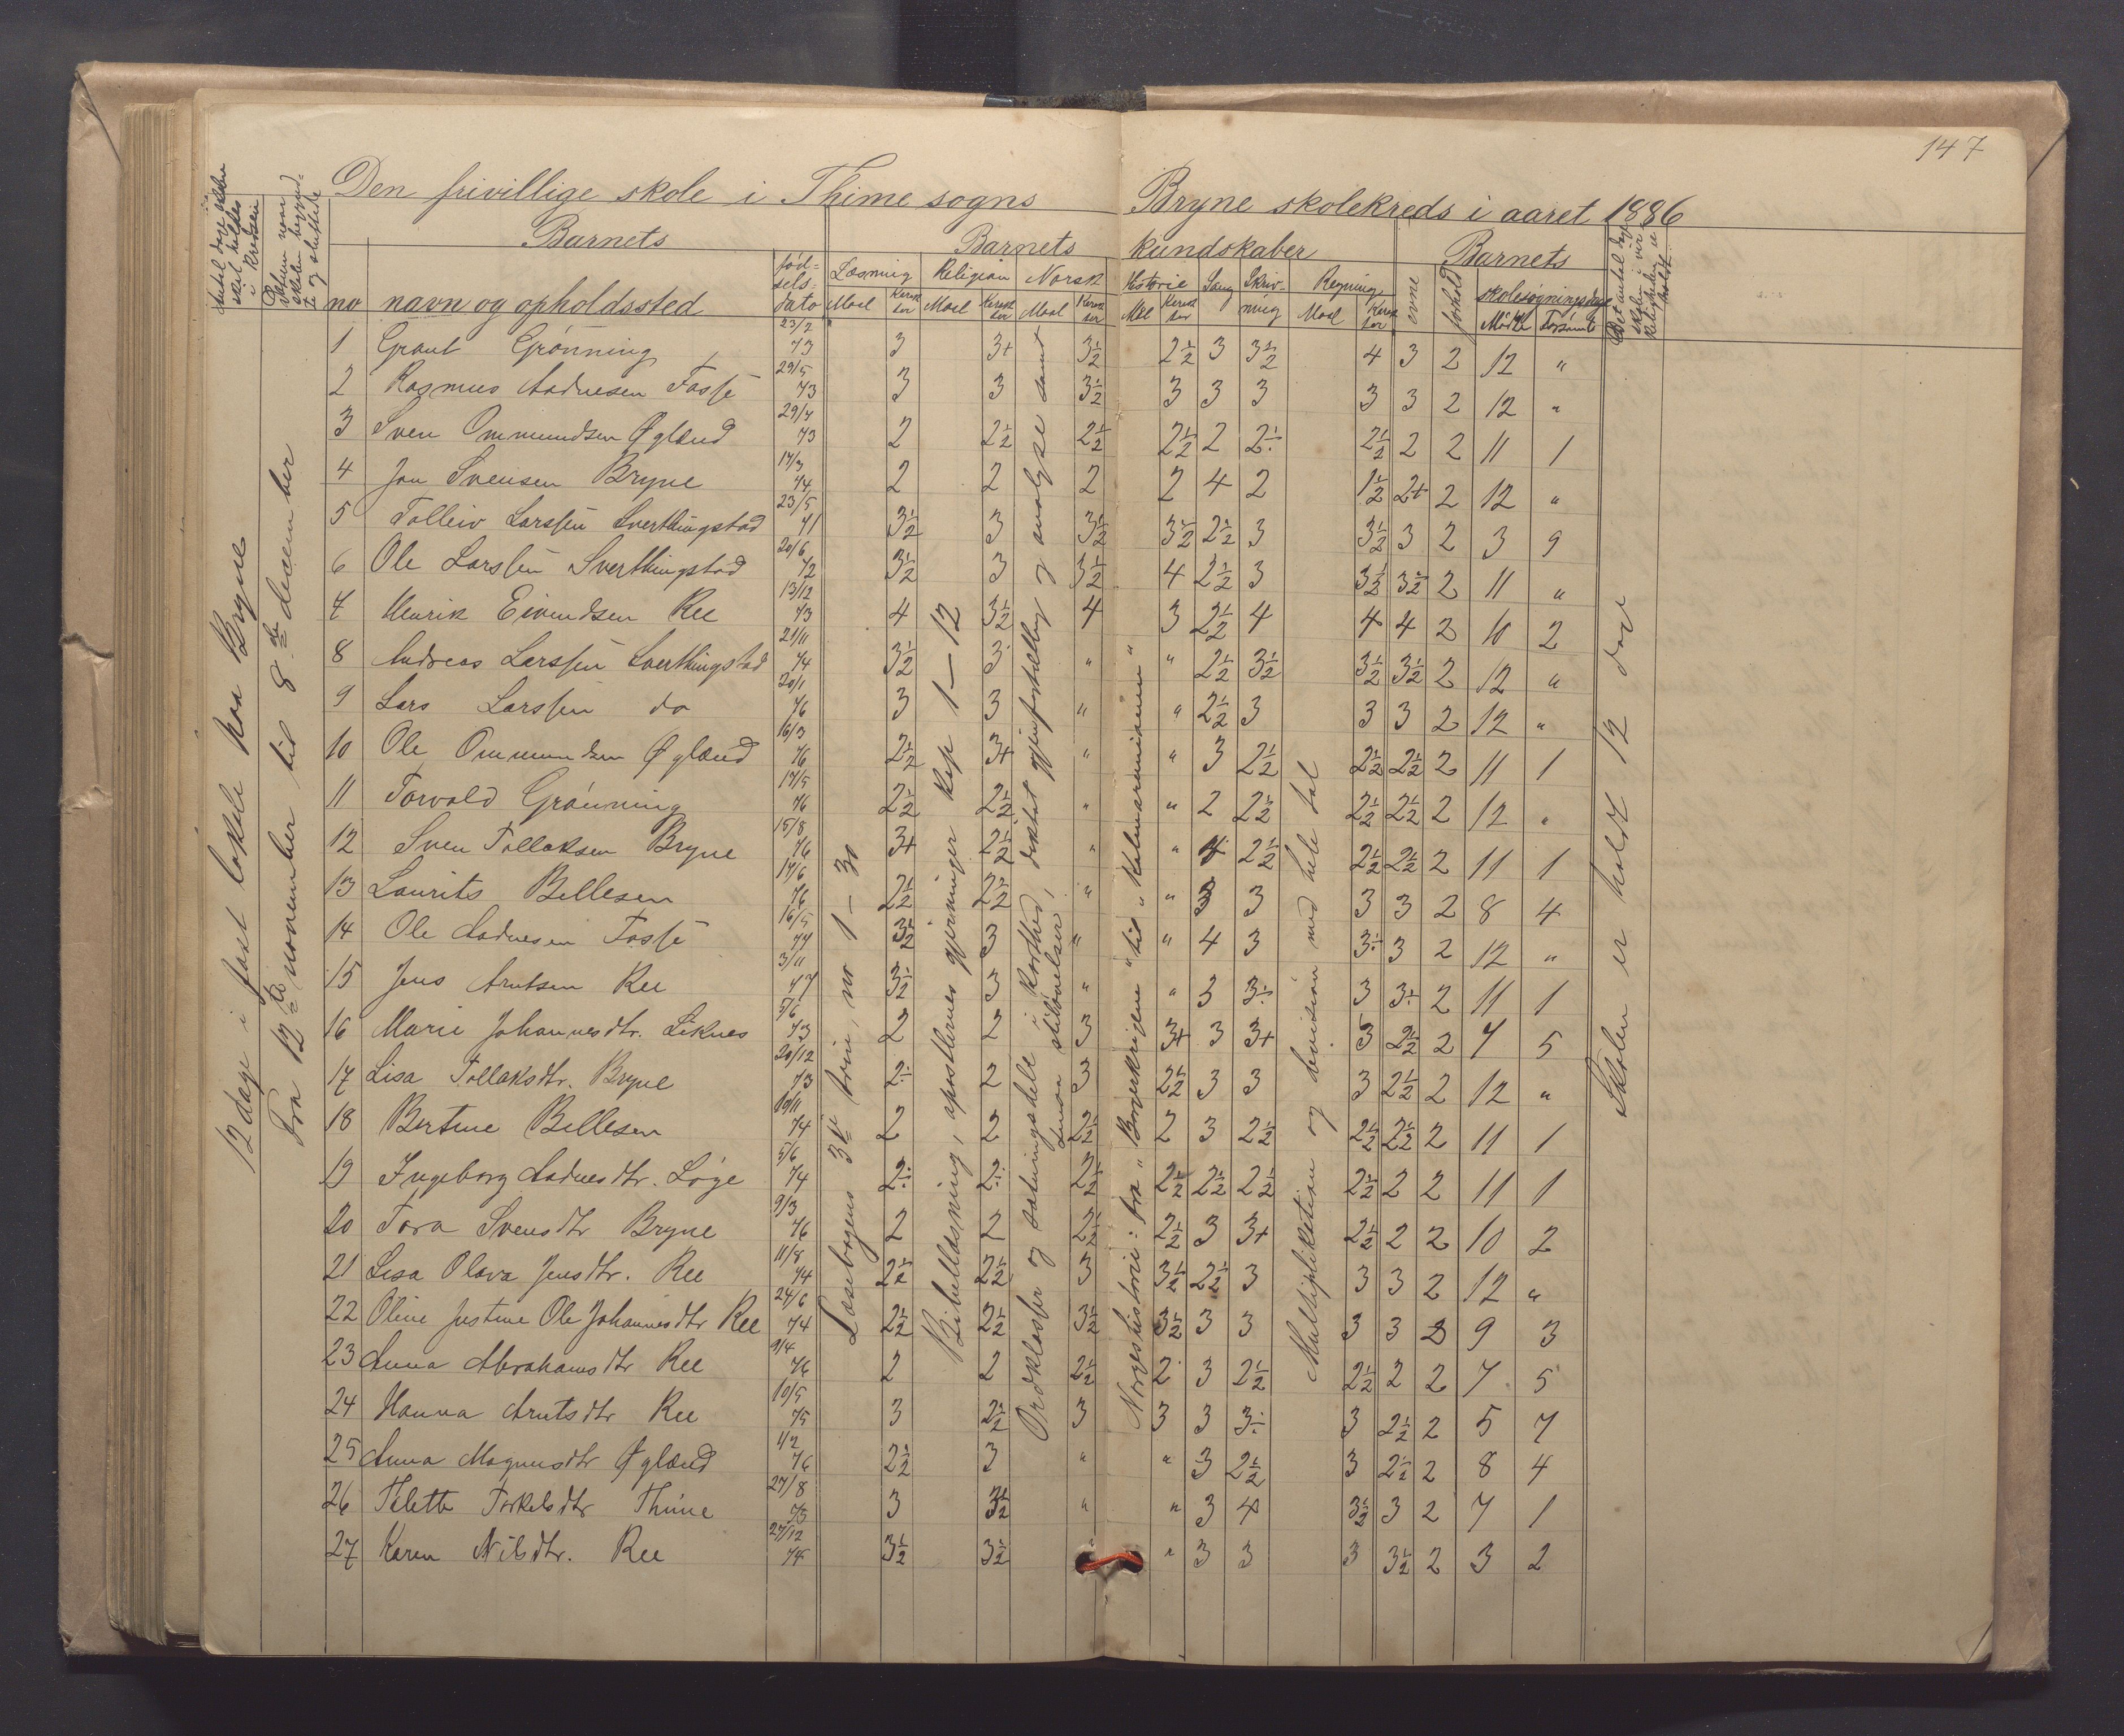 147
Den frivillige skole i Thime sogns Bryne skolekreds i aaret 1886
Antal dage skolen skal holdes i kredsen
Datum naar skolen begyndte og sluttede
Barnets
Barnets kundskaber
Barnets
Det antal dage skolen i virkeligheden er holdt
no navn og opholdssted fødselsdato Læsning Religion Norsk Historie Sang Skrivning Regning evne forhold skolesøgningsdage
Maal Karakter Maal Karakter Maal Karakter Maal Karakter Maal Karakter Mødte Forsømte
12 dage i fast lokale hos Bryne
Fra 12te november til 8de december
Læsebogens 3die trin, no 1 – 30
Bibellæsning, apostlernes gjerninger kap 1 – 12
Ordklasser og sætningsdele i korthed, diktat gjenfortælling og analyse samt stiløvelser
Norgeshistorie: fra "Borgerkrigene" til "Kalmarunionen"
Multiplikation og division med hele tal
Skolen er holdt 12 dage
1 Graut Grønning 23/2 73 3 3+ 3½ 2½ 3 3½ 4 3 2 12 "
2 Rasmus Aadnesen Fosse 29/5 73 3 3 3½ 3 3 3 3 3 2 12 "
3 Sven Ommundsen Øglænd 29/7 73 2 2½ 2½ 2½ 2 2÷ 2½ 2 2 11 1
4 Jon Svensen Bryne 17/3 74 2 2 2 2 4 2 1½ 2+ 2 12 "
5 Tolleiv Larssen Sverthingstad 23/5 71 3½ 3 3½ 3½ 2½ 3 3½ 3 2 3 9
6 Ole Larssen Sverthingstad 20/6 72 3½ 3 3½ 4 2½ 3 3½ 3½ 2 11 "
7 Henrik Eivindsen Ree 13/12 73 4 3½ 4 3 2½ 4 4 4 2 10 2
8 Andreas Larssen Sverthingstad 21/11 74 3½ 3 " " 2½ 3½ 3½ 3½ 2 12 "
9 Lars Larssen do 20/1 76 3 3 " " 2½ 3 3 3 2 12 "
10 Ole Ommundsen Øglænd 16/3 76 2½ 3+ " " 3 2½ 2½ 2½ 2 11 1
11 Torvald Grønning 17/5 76 2½ 2½ " " 2 2½ 2½ 2½ 2 12 "
12 Sven Tollaksen Bryne 15/8 76 3+ 2½ " " 4 2½ 2½ 2½ 2 11 1
13 Laurits Bellesen 17/6 76 2½ 2½ " " 3 3 3 3 2 8 4
14 Ole Aadnesen Fosse 16/5 77 3½ 3 " " 4 3 3÷ 3 2 12 "
15 Jens Arntsen Ree 3/11 77 3½ 3 " " 3 3÷ 3 3÷ 2 11 1
16 Marie Johannesdtr. Liknes 5/6 73 2 2 3 3+ 3 3+ 3 2½ 2 7 5
17 Lisa Tollaksdtr. Bryne 20/12 73 2÷ 2 3 2½ 3 3 3 2½ 2 12 "
18 Bertine Bellesen 10/11 74 2 2 2½ 2 3 2½ 2½ 2½ 2 11 1
19 Ingeborg Aadnesdtr. Løge 5/6 74 2÷ 2÷ 2½ 2½ 2½ 2½ 2½ 2 2 11 1
20 Tora Svensdtr Bryne 9/3 76 2 2 2½ 2½ 3 3+ 2½ 2 2 10 2
21 Lisa Olava Jensdtr. Ree 11/8 74 2½ 2½ 3 3½ 2½ 3 3 3 2 12 "
22 Oline Justine Ole Johannesdtr Ree 24/6 74 2½ 2½ 3½ 3½ 3 3 3 3 2 9 3
23 Anna Abrahamsdtr Ree 9/4 76 2 2 2½ 2 3 2½ 2½ 2 2 7 5
24 Hanna Arntsdtr Ree 10/5 75 3 2½ 3 3 3 3÷ 3 2½ 2 5 7
25 Anna Magnusdtr Øglænd 1/2 76 2½ 3 " " 3 2½ 3 2½ 2 8 4
26 Talette Torkelsdtr Thime 27/8 75 3 3½ " " 3 4 3½ 3 2 7 1
27 Karen Nilsdtr. Ree 27/12 75 3½ 3½ " " 3 3 3 3½ 2 3 2